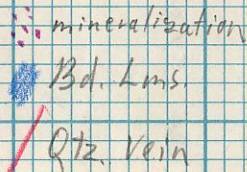 mineralization
Bd. Lms
Qtz. Vein